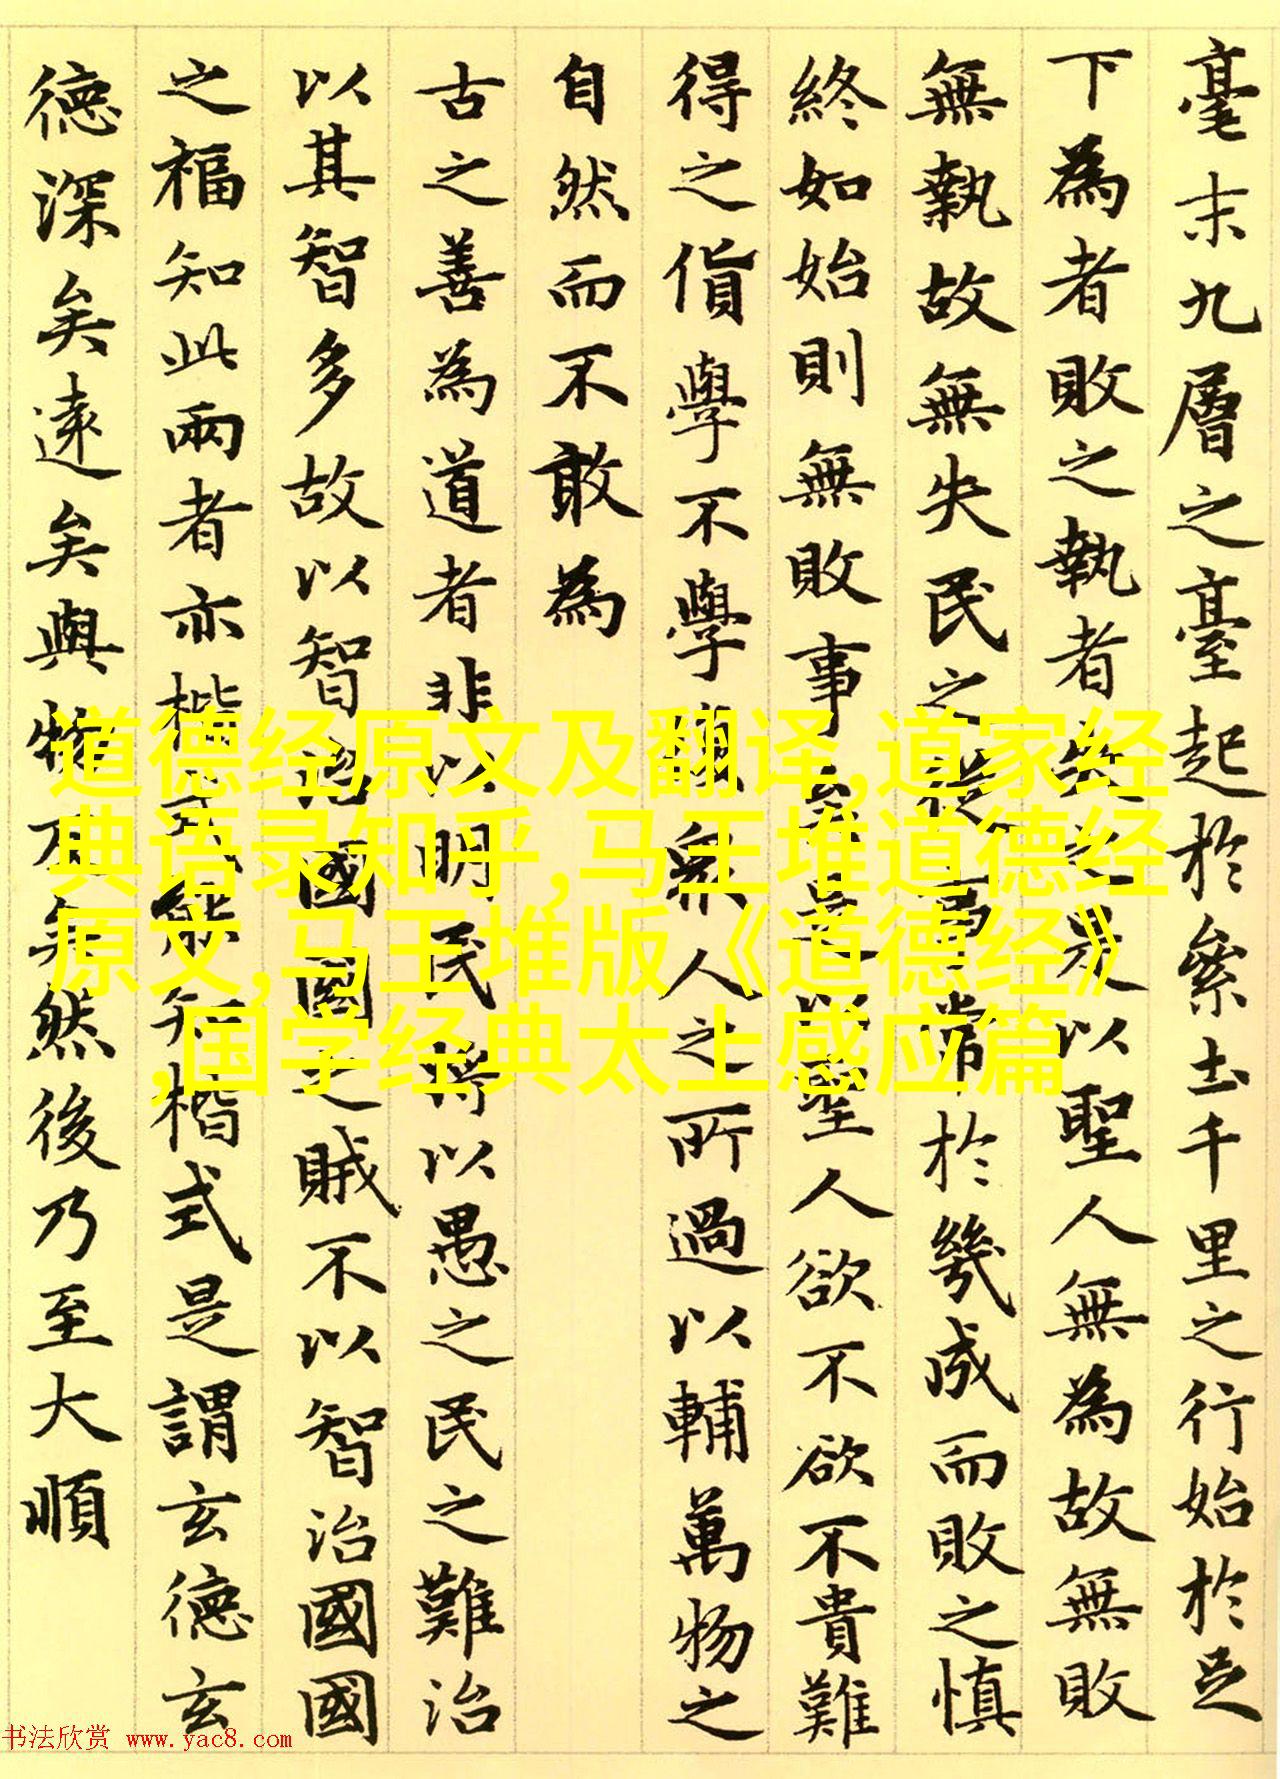 毫末九層之臺起於絫土千里之行始於足
下為者敗之執者失之是以聖人無為故無敗
無執故無失民之從事常於幾成而敗之慎
終如始則無敗事矣是以聖人欲不欲不貴難
得之貨學不學復衆人之所過以輔萬物之
自然而不敢為
古之善為道者非以明民將以愚之民之難治
以其智多故以智治國國之賊不以智治國國
之福知此兩者亦楷式能知楷式是謂玄德玄
德深矣遠矣與物反矣然後乃至大順
道德经原文及翻译,道家经
典语录知乎,马王堆道德经
原文,马王堆版《道德经》
,国学经典太上感应篇
书法欣赏 www.yac8.com